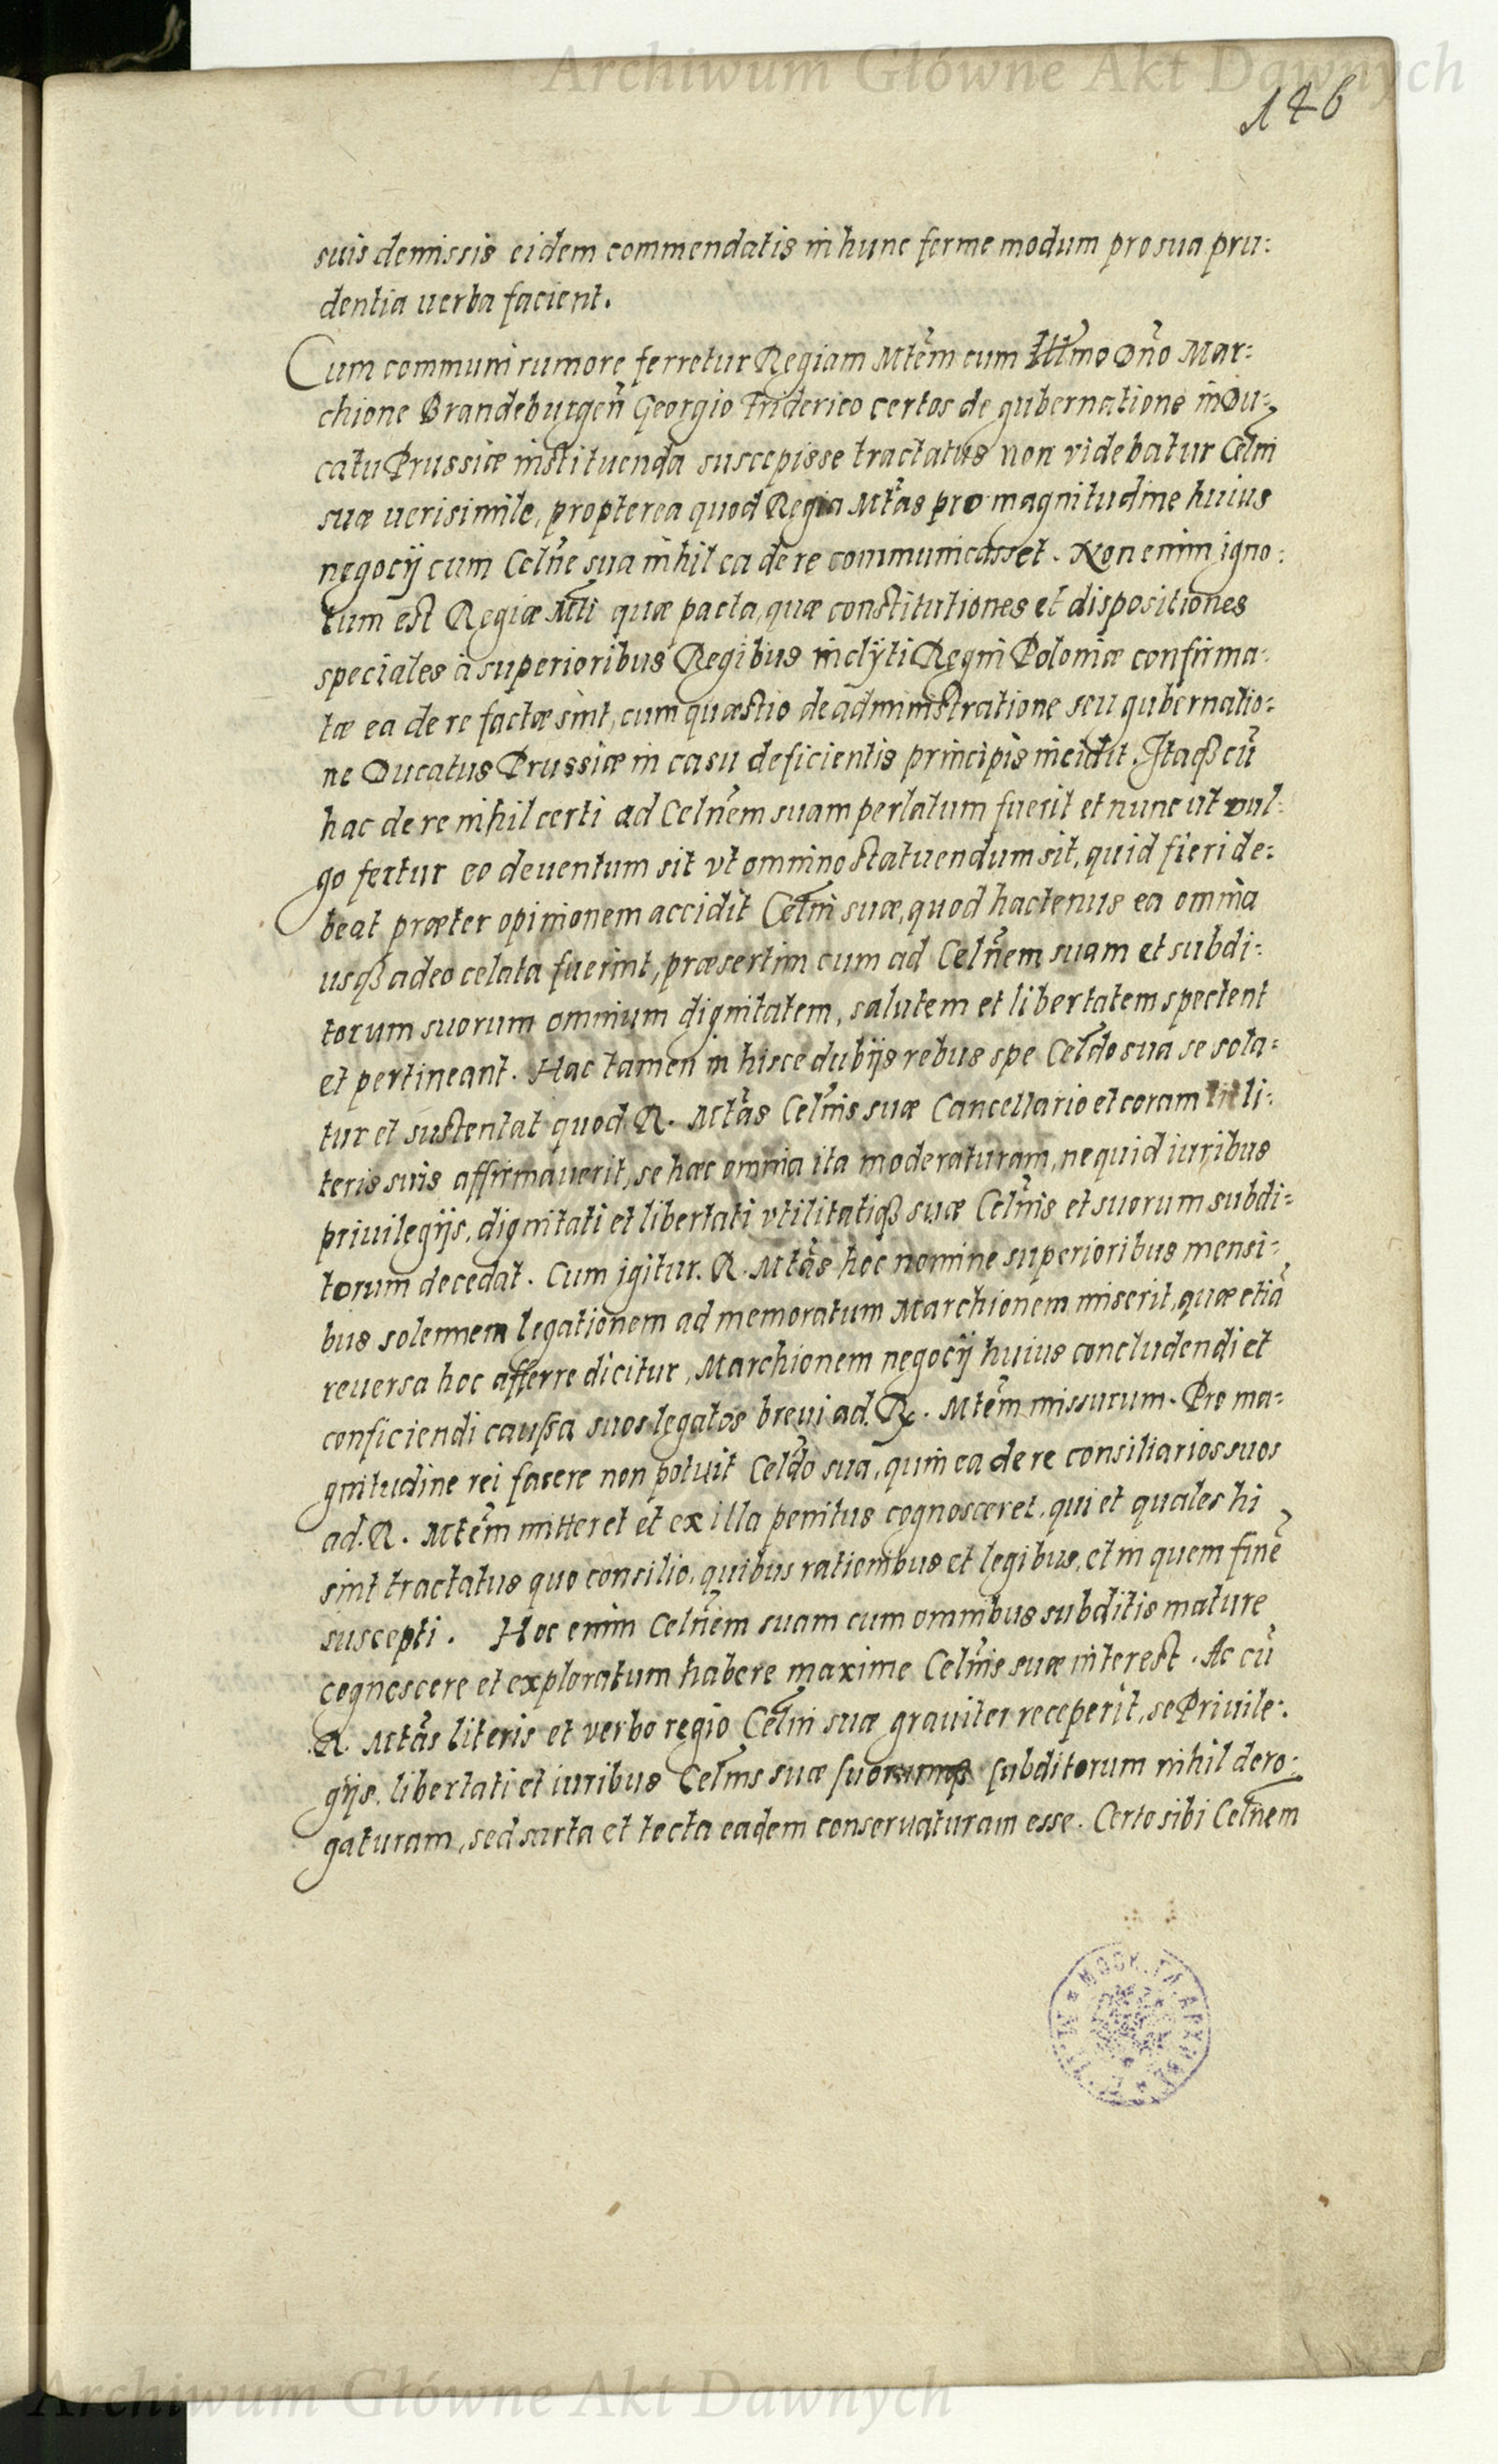 Archiwum Główne Akt Dawnych
146
suis demissis eidem commendatis in hunc ferme modum pro sua pru:
dentia uerba facient.
Cum communi rumore ferretur Regiam Mtem cum Illmo Dño Mar:
chione Brandeburgeñ Georgio Friderico certos de gubernatione in Du:
catu Prussiæ instituenda suscepisse tractatus non videbatur Celni
suæ uerisimile, propterea quod Regia Mtas pro magnitudine huius
negocij cum Celne sua nihil ea de re communicasset. Non enim igno:
tum est Regiæ Mti quæ pacta, quæ constitutiones et dispositiones
speciales à superioribus Regibus inclyti Regni Poloniæ confirma:
tæ ea de re factæ sint, cum quæstio de administratione seu gubernatio:
ne Ducatus Prussiæ in casu deficientis principis incidit. Itaqß cū
hac de re nihil certi ad Celnem suam perlatum fuerit et nunc ut vul:
go fertur eo deuentum sit vt omnino statuendum sit, quid fieri de:
beat præter opinionem accidit Celni suæ, quod hactenus ea omnia
usqß adeo celata fuerint, præsertim cum ad Celnem suam et subdi:
torum suorum omnium dignitatem, salutem et libertatem spectent
et pertineant. Hac tamen in hisce dubijs rebus spe Celdo sua se sola:
tur et sustentat quod R. Mtas Celnis suæ Cancellario et coram li:
teris suis affirmauerit, se hæc omnia ita moderaturam, ne quid iuribus
priuilegijs, dignitati et libertati vtilitatiqß suæ Celnis et suorum subdi:
torum decedat. Cum igitur. R. Mtas hoc nomine superioribus mensi:
bus solennem legationem ad memoratum Marchionem miserit, quæ etiā
reuersa hoc afferre dicitur, Marchionem negocij huius concludendi et
conficiendi caußa suos legatos breui ad. R. Mtem missurum. Pro ma:
gnitudine rei facere non potuit Celdo sua, quin ea de re consiliarios suos
ad. R. Mtem mitteret et ex illa penitus cognosceret, qui et quales hi
sint tractatus quo consilio, quibus rationibus et legibus, et in quem finē
suscepti. Hoc enim Celnem suam cum omnibus subditis mature
cognoscere et exploratum habere maxime Celnis suæ interest. Ac cū
R. Mtas literis et verbo regio Celni suæ grauiter receperit, se Priuile:
gijs, libertati et iuribus Celnis suæ suorumqß subditorum nihil dero:
gaturam, sed sarta et tecta eadem conseruaturam esse. Certo sibi Celnem
Archiwum Główne Akt Dawnych